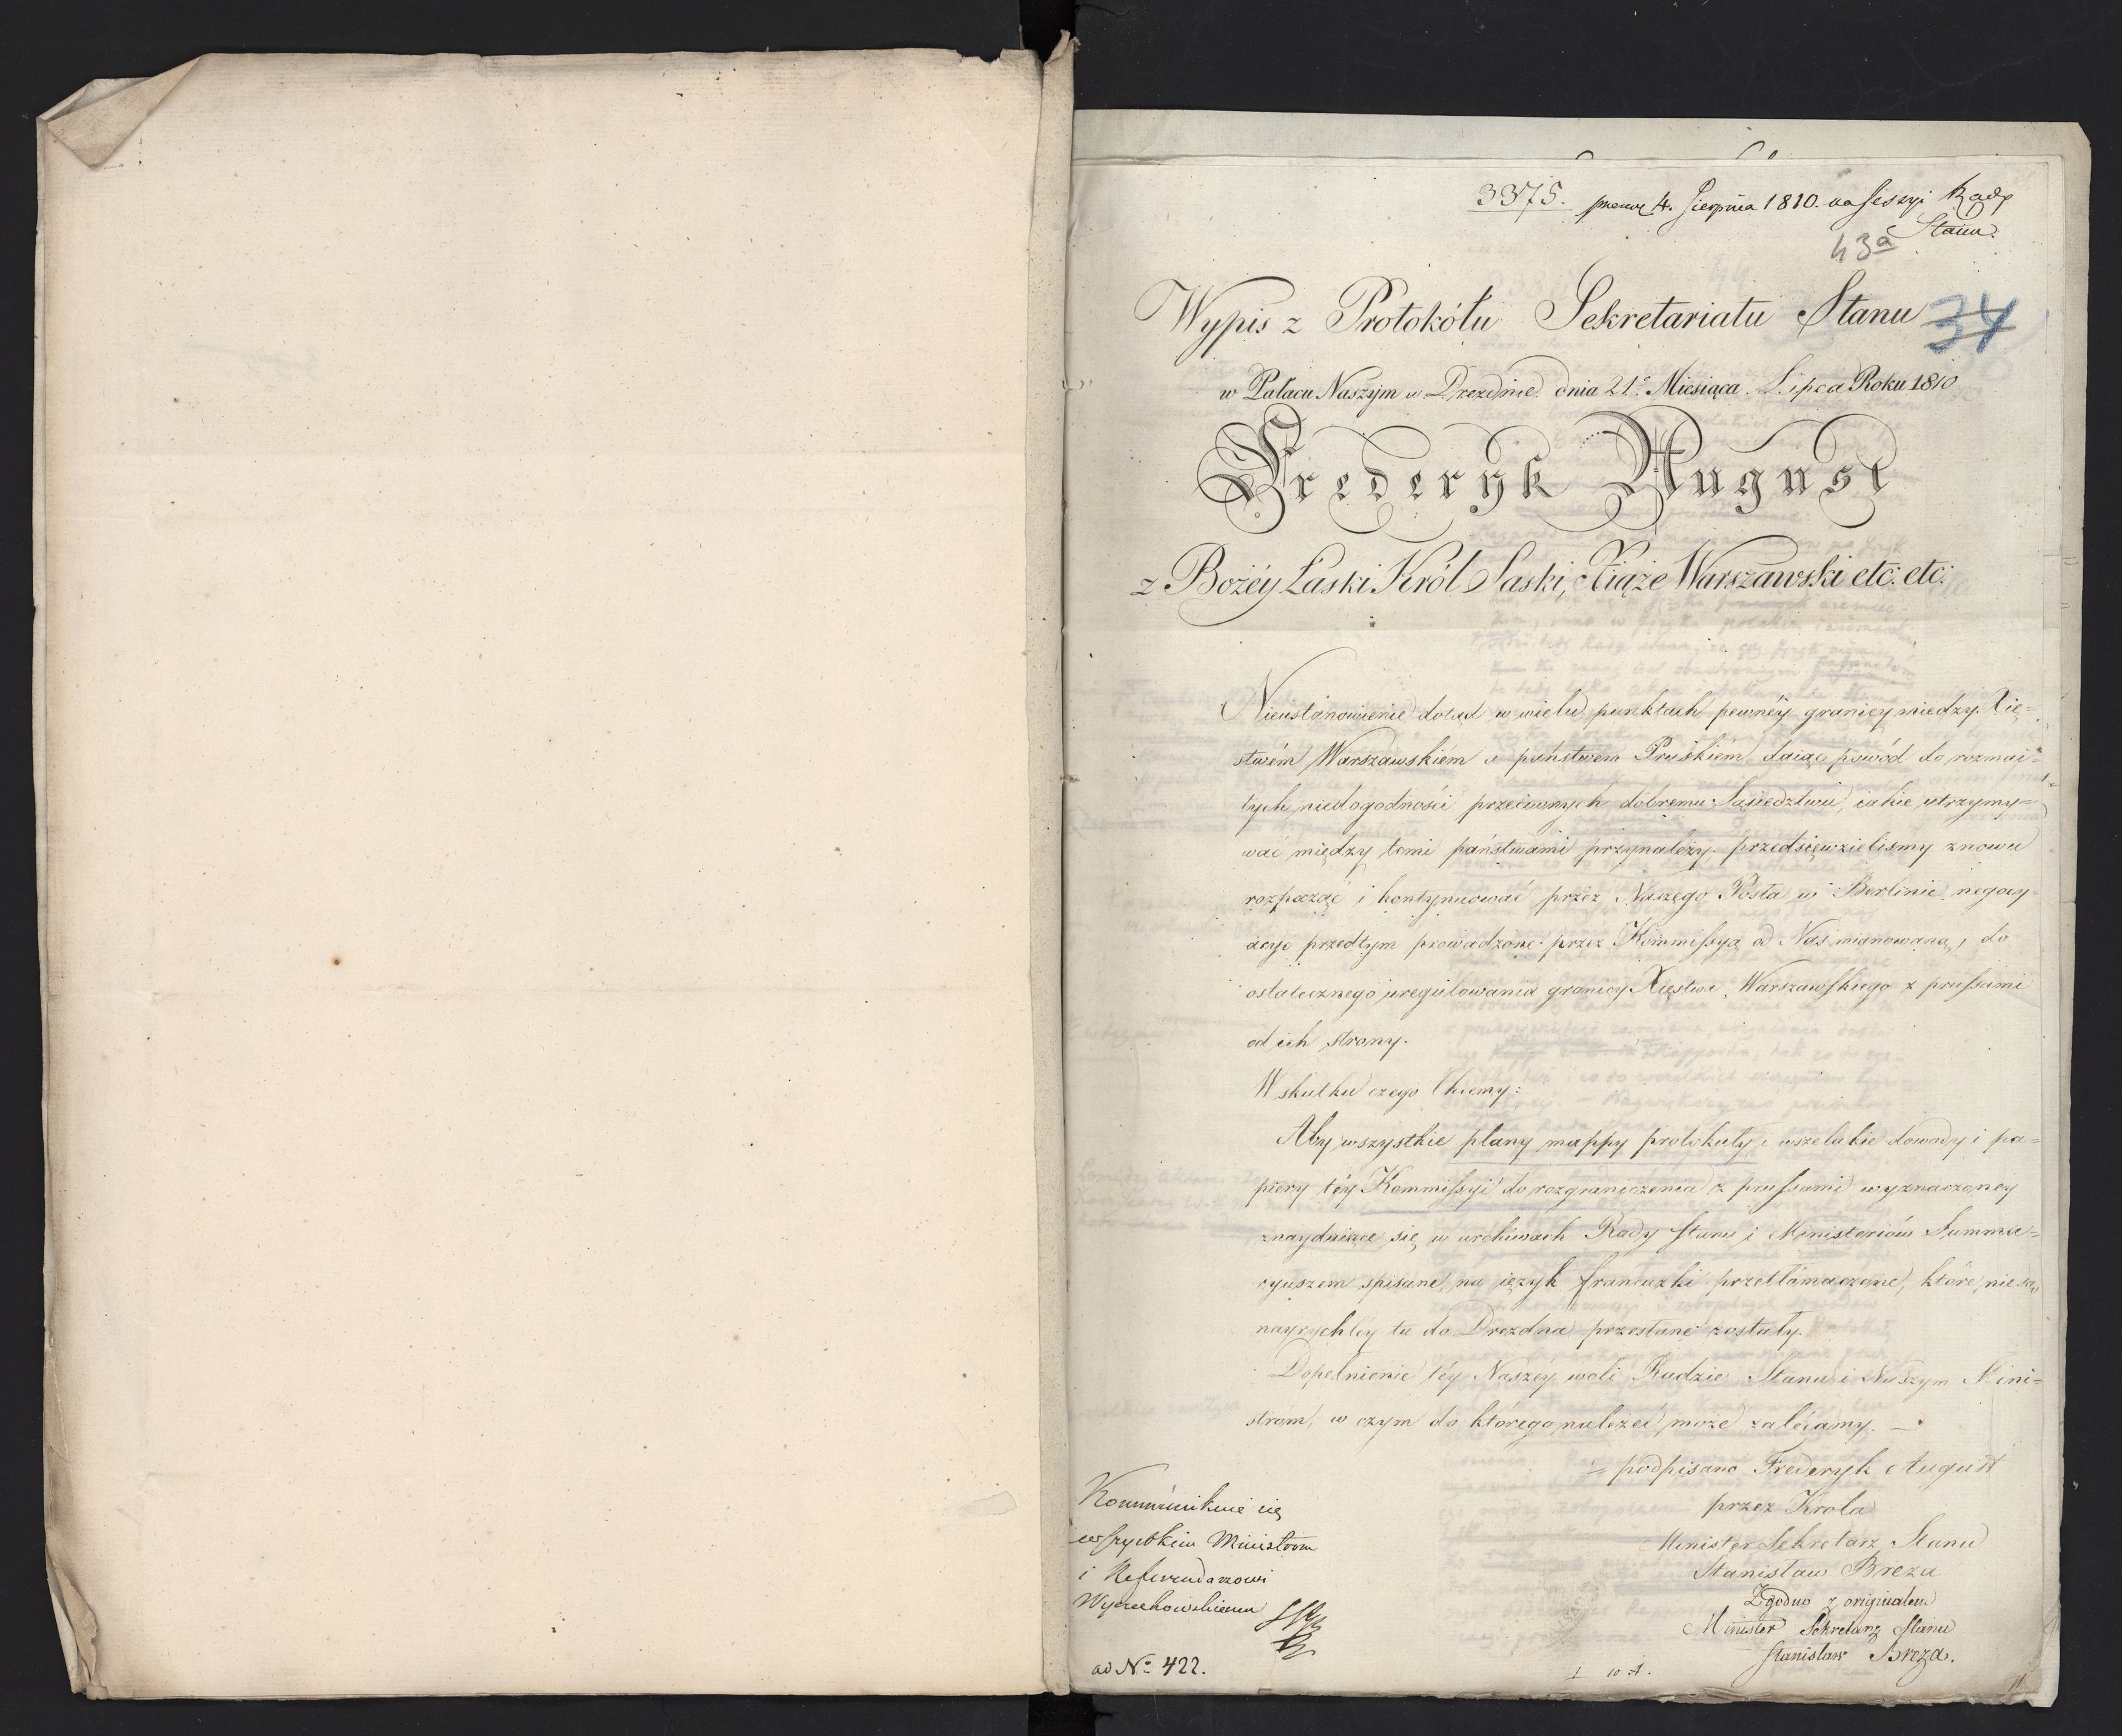 3375. 4. Sierpnia 1810. na Sessyi Rady
Stanu.
43a
Wypis z Protokółu Sekretariatu Stanu 34
w Pałacu Naszym w Dreznie dnia 21. Miesiąca Lipca Roku 1810
Frederyk August
z Bożéy Łaski Król Saski, Xiąże Warszawski etc: etc:
Nieustanowienie dotąd w wielu punktach pewnéy granicy miedzy Xię=
stwém Warszawskiém a państwem Pruskiem, daiąc powód do rozmai=
tych niedogodności przeciwnych dobremu Sąsiedztwu, iakie utrzymy=
wać między temi państwami przynależy. przedsięwzielismy znowu
rozpocząć i kontynuować przez Naszego Posła w Berlinie negocy=
acye przedtym prowadzone przez Kommissyą od Nas mianowaną, do
ostatecznego uregulowania granicy Xięstwa Warszawskiego z prussami
od ich strony.
W skutku czego Chcemy:
Aby wszystkie plany mappy protokuły i wszelakie dowody i pa=
piery téy Kommissyi do rozgraniczenia z prussami wyznaczoney
znayduiące się w archiwach Rady Stanu i Ministeriów Summa=
ryuszem spisane, na ięzyk francuzki przetłómaczone, które nie są,
nayrychléy tu do Drezdna przesłane zostały.
Dopełnienie téy Naszéy woli Radzie Stanu i Naszym Mini=
stróm, w czym do którego należeć może zalécamy. —
podpisano Frederyk August
przez Krola
Minister Sekretarz Stanu
Stanisław Breza
Zgodno z originałem
Minister Sekretarz Stanu
Stanisław Breza.
Kommunikuie się
wszystkim Ministrom
i Referendarzowi
Wyczechowskiemu
ad No 422.